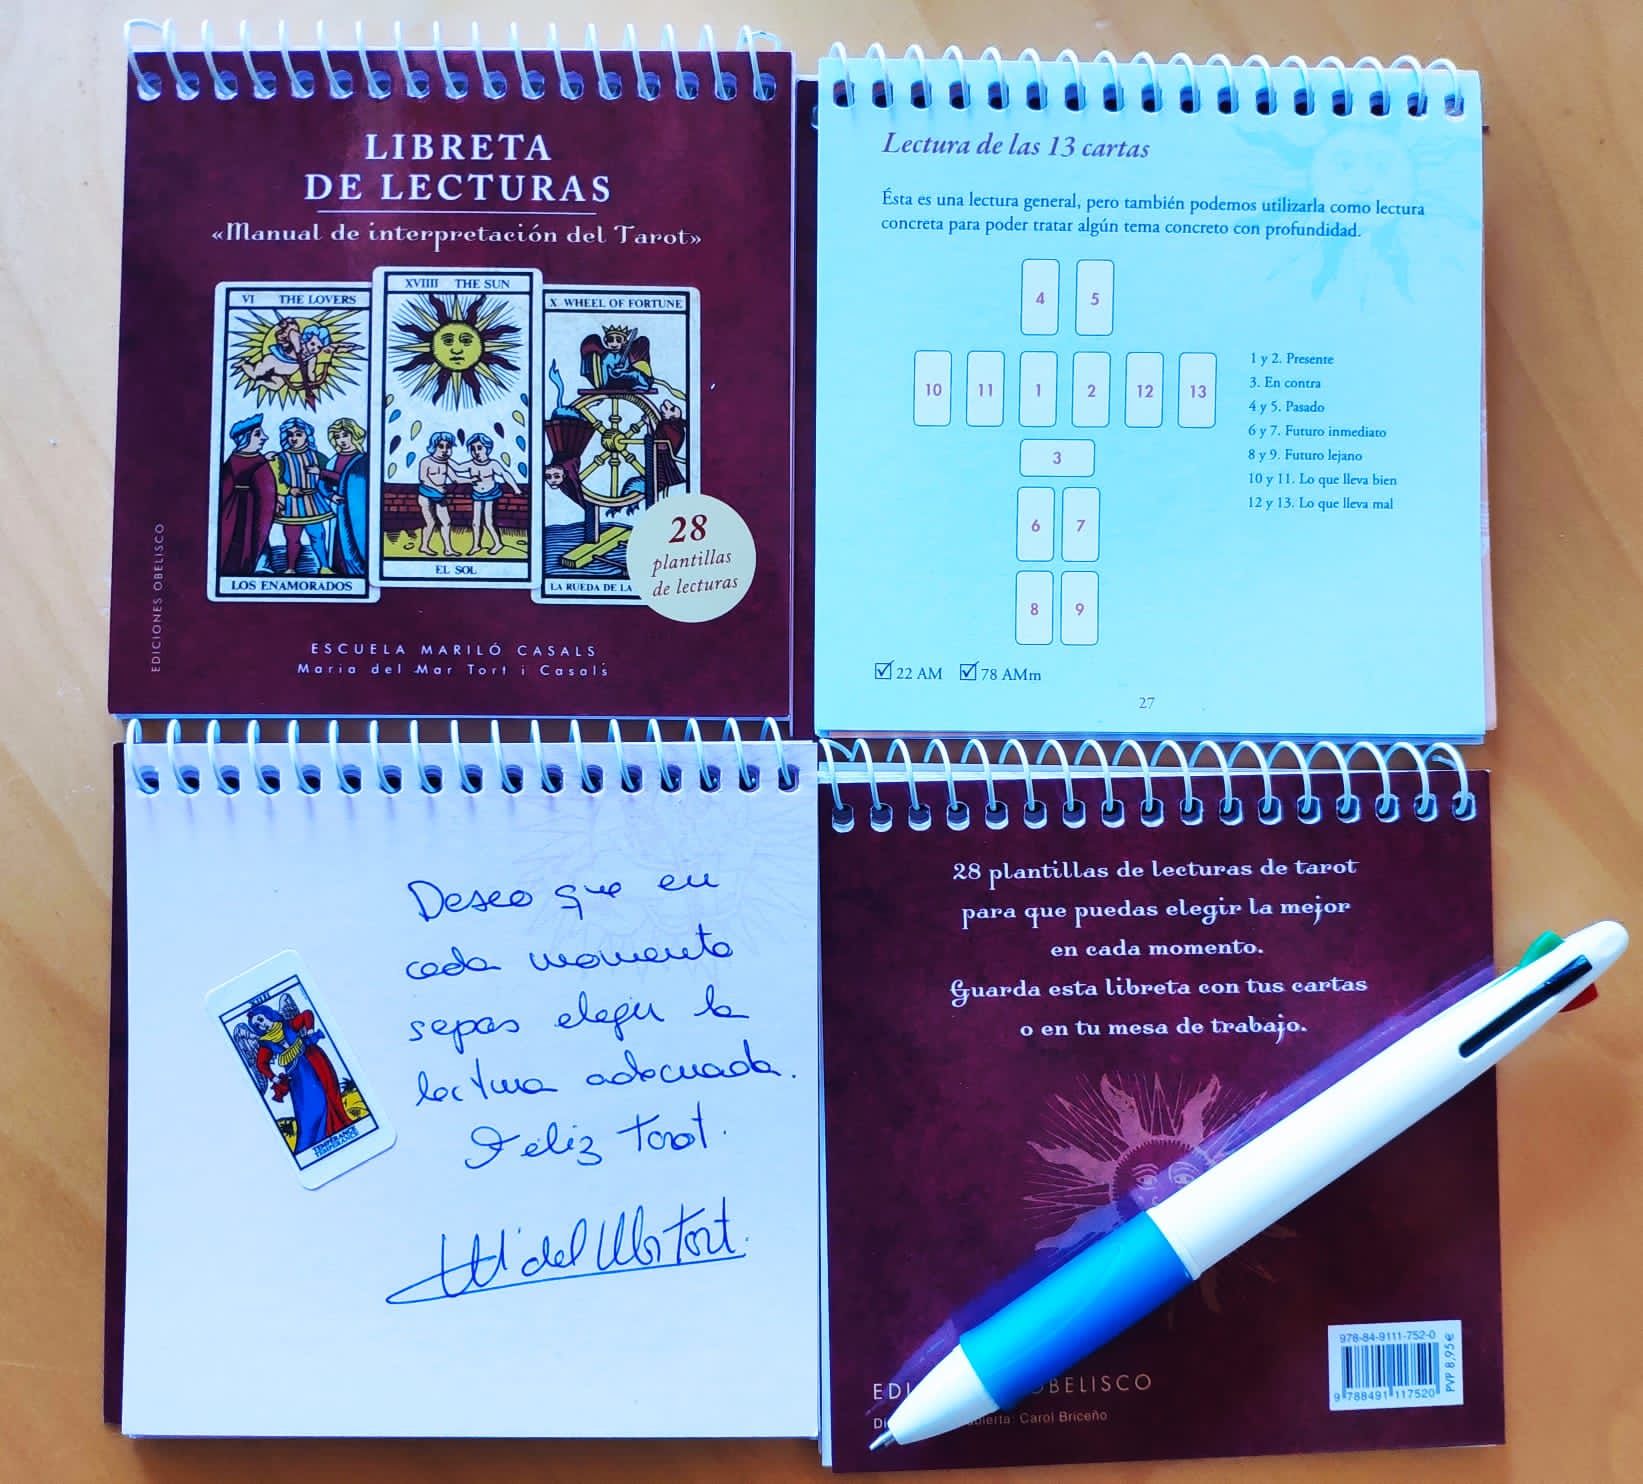 LIBRETA
DE LECTURAS
«Manual de interpretación del Tarot»
VI THE LOVERS
LOS ENAMORADOS
XVIIII THE SUN
EL SOL
X WHEEL OF FORTUNE
LA RUEDA DE LA
28
plantillas
de lecturas
EDICIONES OBELISCO
ESCUELA MARILÓ CASALS
Maria del Mar Tort i Casals
Lectura de las 13 cartas
Ésta es una lectura general, pero también podemos utilizarla como lectura
concreta para poder tratar algún tema concreto con profundidad.
4 5
10 11 1 2 12 13
3
6 7
8 9
1 y 2. Presente
3. En contra
4 y 5. Pasado
6 y 7. Futuro inmediato
8 y 9. Futuro lejano
10 y 11. Lo que lleva bien
12 y 13. Lo que lleva mal
22 AM 78 AMm
27
Deseo que en
cada momento
sepas elegir la
lectura adecuada.
Feliz tarot.
Mª del Mar Tort.
XIIII
TEMPÉRANCE
TEMPERANCE
28 plantillas de lecturas de tarot
para que puedas elegir la mejor
en cada momento.
Guarda esta libreta con tus cartas
o en tu mesa de trabajo.
EDI OBELISCO
Di bierta: Carol Briceño
978-84-9111-752-0
9 788491 117520
PVP 8,95 €